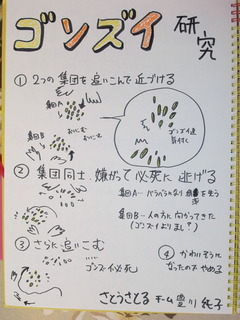 ゴンズイ 研究
① 2つの 集団を 追いこんで 近づける
集団A
集団B
おいこむ
おいこむ
ゴンズイ達
気付く
② 集団同士、嫌がって 必死に 逃げる
集団A…バラバラになり
集団B…人の方に 向かってきた
(ゴンズイ
③ さらに 追いこむ
ゴンズイ必死
④ かわいそうに
なったので やめる
さとうさとる
純子